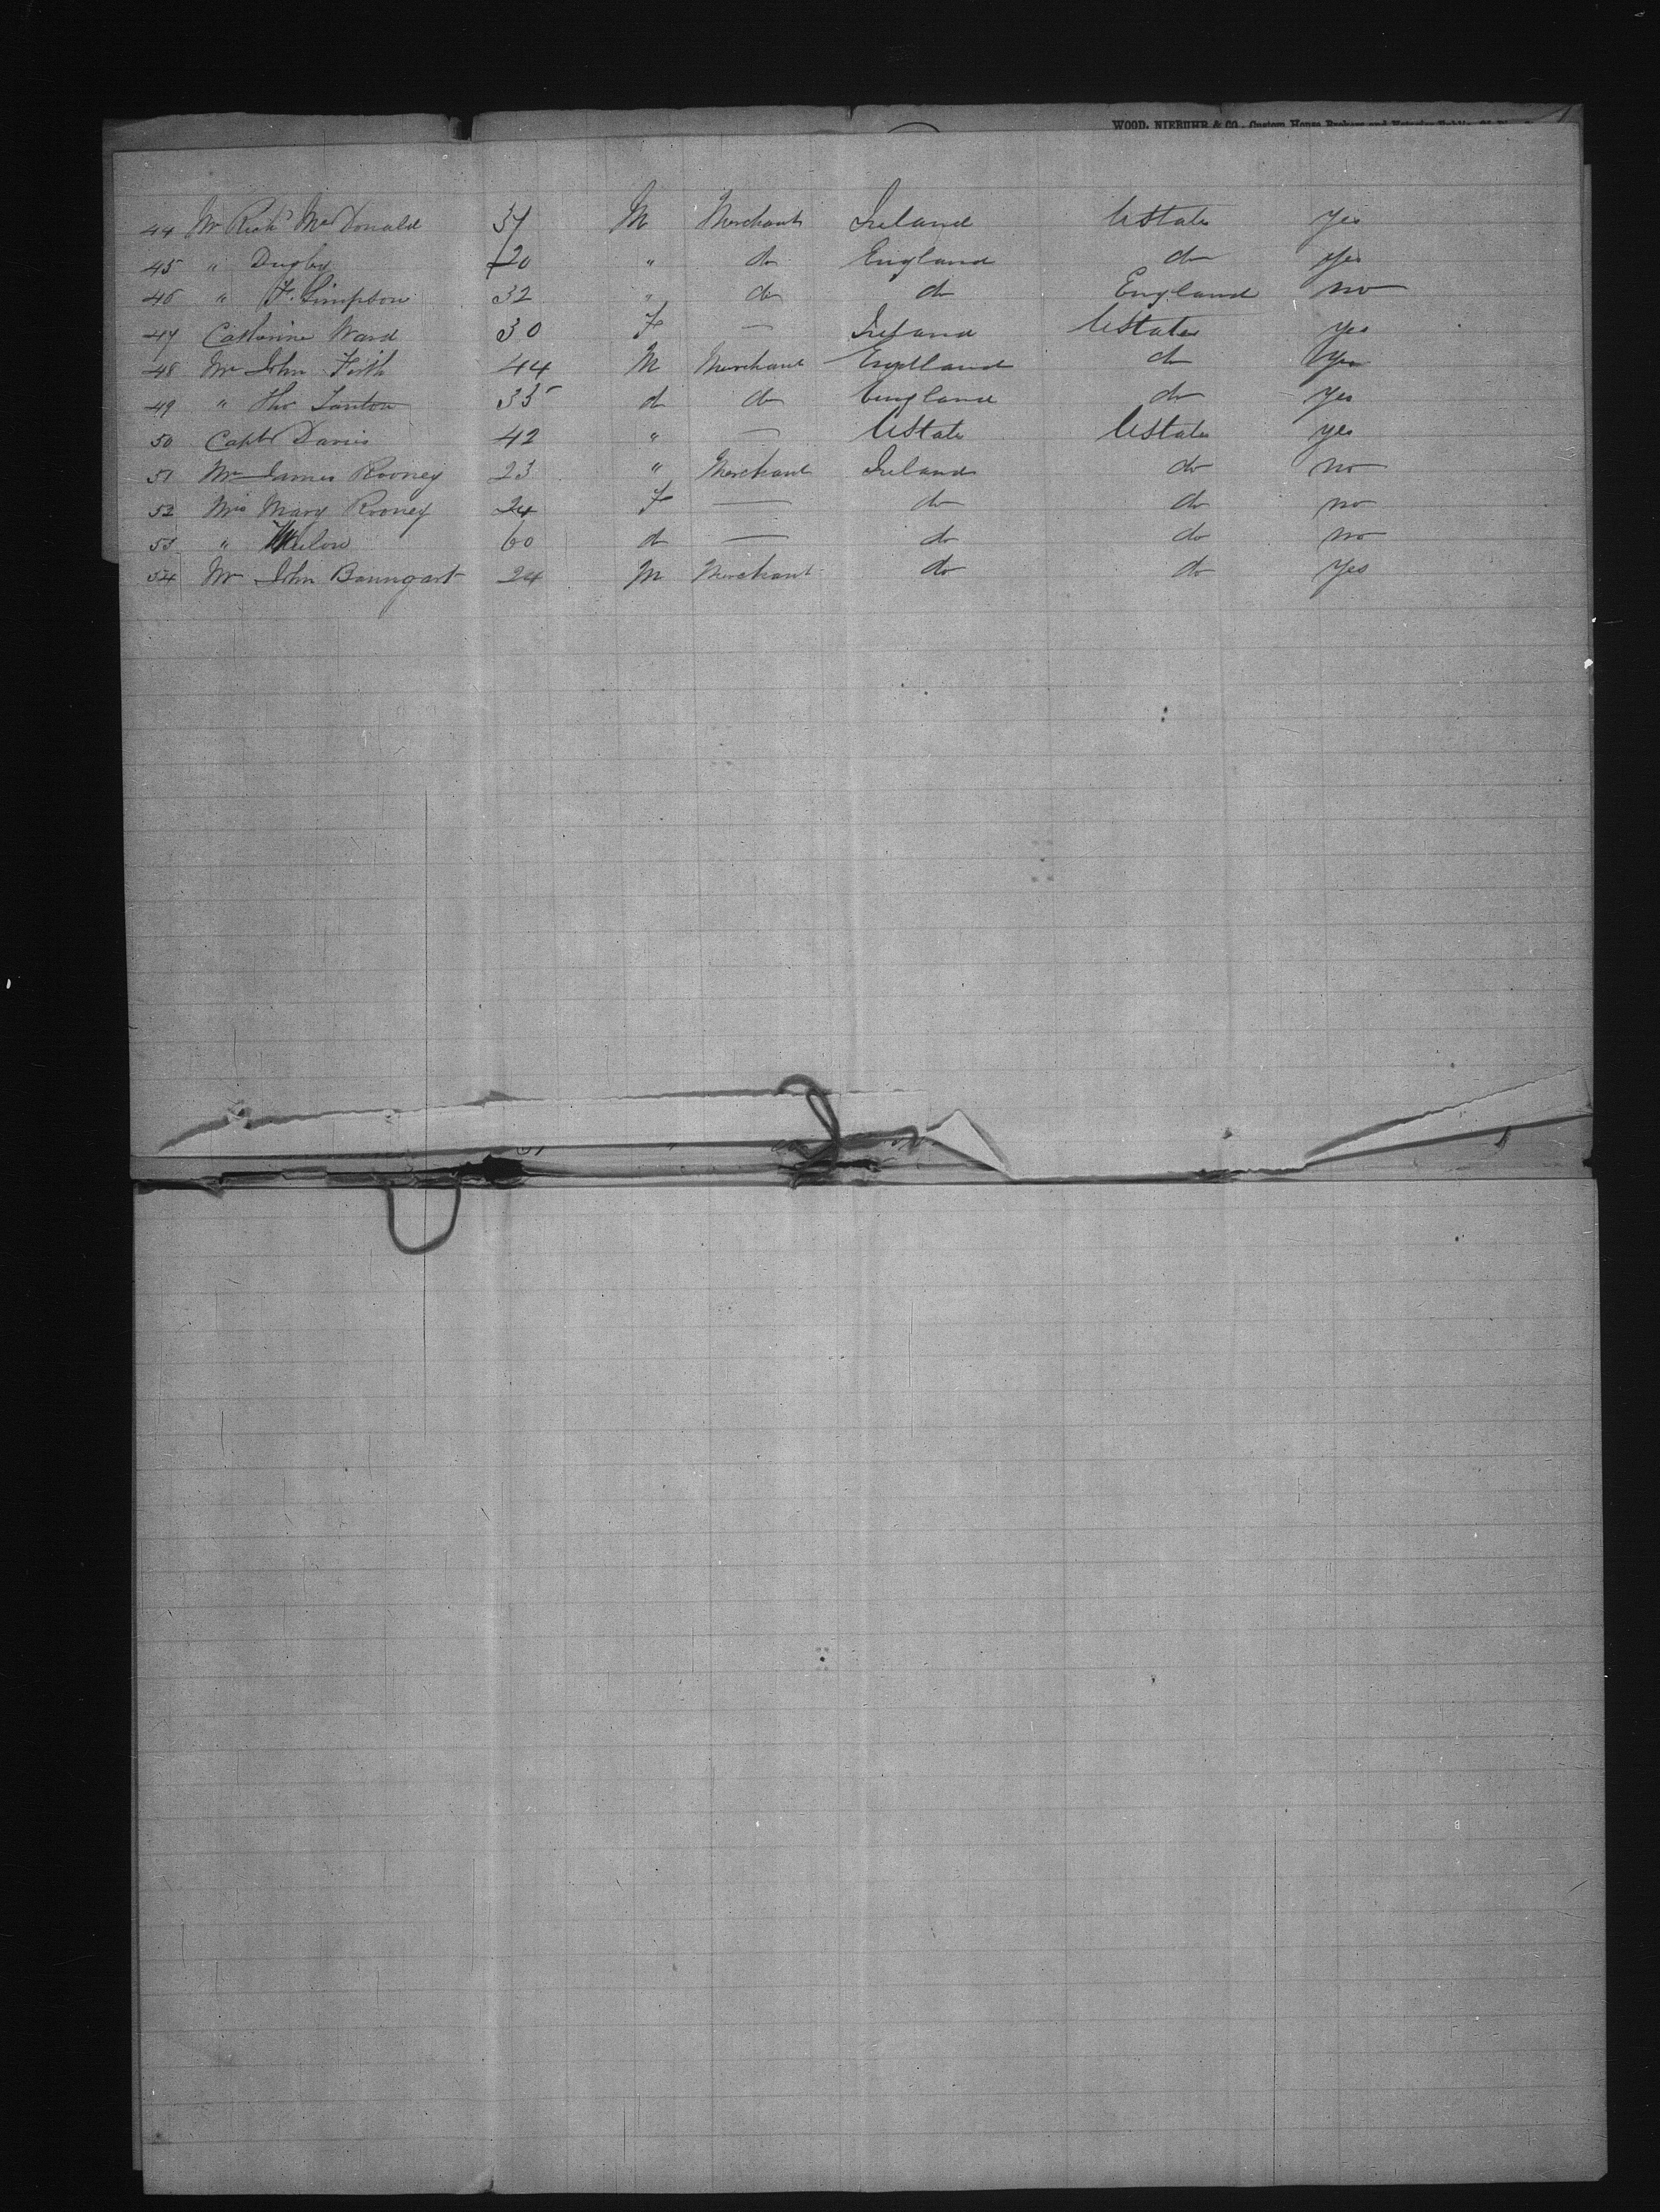 WOOD, NIEBUHR & CO., Custom House Brokers and Notaries Public,
44 Mr Richd McDonald 37 M Merchant Ireland UStates yes
45 " Dugby 20 " do England do yes
46 " F. Simpson 32 " do do England no
47 Catherine Ward 30 F — Ireland UStates yes
48 Mr John Firth 44 M Merchant England do yes
49 " Thos Lanton 35 d do England do yes
50 Capt Davis 42 " — UState UStates yes
51 Mr James Rooney 23 " Merchant Ireland do no
52 Mrs Mary Rooney 24 F — do do no
53 " 60 d — do do no
54 Mr John Baumgart 24 M Merchant do do yes